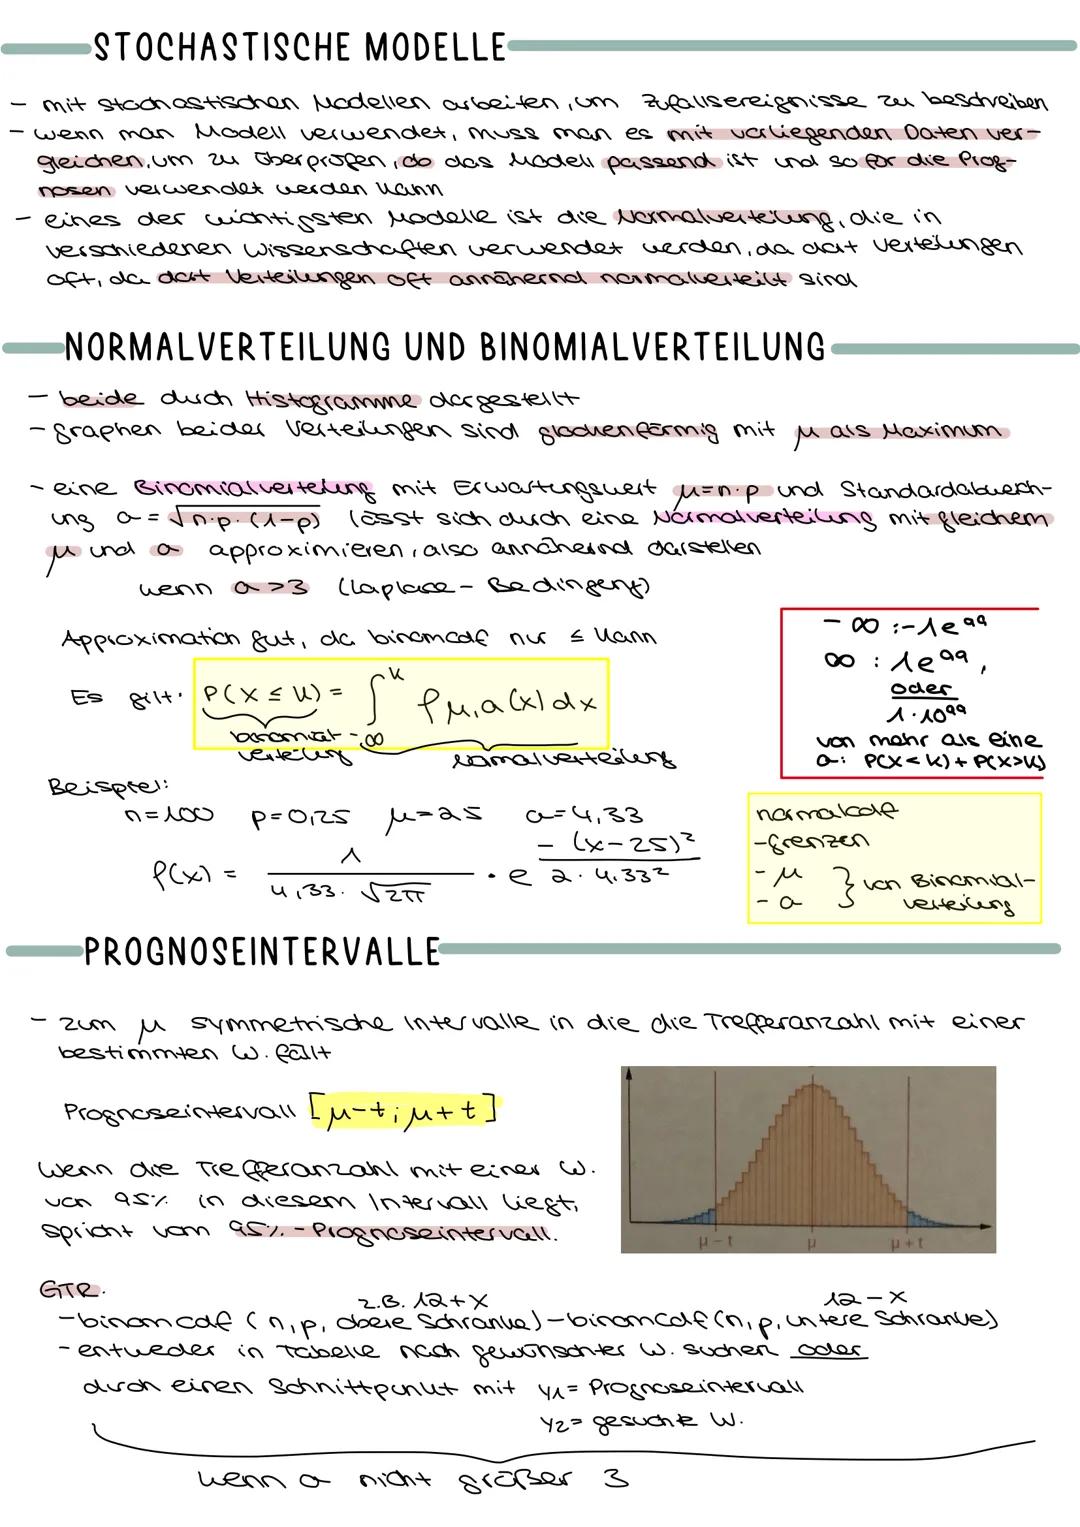 STOCHASTISCHE MODELLE
- mit stochastischen Modellen arbeiten, um Zufallsereignisse zu beschreiben
- wenn man Modell verwendet, muss man es mit vorliegenden Daten ver-
gleichen, um zu überprüfen, ob das Modell passend ist und so für die Prog-
nosen verwendet werden kann
- eines der wichtigsten Modelle ist die Normalverteilung, die in
verschiedenen Wissenschaften verwendet werden, da dort Verteilungen
oft, da dort Verteilungen oft annähernd normalverteilt sind
NORMALVERTEILUNG UND BINOMIALVERTEILUNG
- beide durch Histogramme dargestellt
- Graphen beider Verteilungen sind glockenförmig mit μ als Maximum
- eine Binomialverteilung mit Erwartungswert μ=n·p und Standardabweich-
ung σ=√n·p·(1-p) lässt sich durch eine Normalverteilung mit gleichem
μ und σ approximieren, also annähernd darstellen
wenn σ>3 (Laplace-Bedingung)
Approximation gut, da binomcdf nur ≤ kann
Es gilt: P(X ≤ k) = ∫ k -∞ φμ,σ(x) dx
binomial-
verteilung
Normalverteilung
- ∞ : -1e99
∞ : 1e99,
oder
1·10^99
von mehr als eine
σ: P(X<k)+P(X>k)
Beispiel:
n=100 p=0,25 μ=25 σ=4,33
φ(x) = 1 / (4,33·√2π) · e^(-(x-25)² / (2·4,33²))
normalcdf
- Grenzen
- μ
- σ } von Binomial-
verteilung
PROGNOSEINTERVALLE
- zum μ symmetrische Intervalle in die die Trefferanzahl mit einer
bestimmten W. fällt
Prognoseintervall [μ-t; μ+t]
Wenn die Trefferanzahl mit einer W.
von 95% in diesem Intervall liegt,
spricht vom 95%-Prognoseintervall.
μ-t μ μ+t
GTR:
z.B. 12+X 12-X
- binomcdf (n, p, obere Schranke) - binomcdf (n, p, untere Schranke)
- entweder in Tabelle nach gewünschter W. suchen oder
durch einen Schnittpunkt mit y1= Prognoseintervall
y2= gesuchte W.
wenn σ nicht größer 3